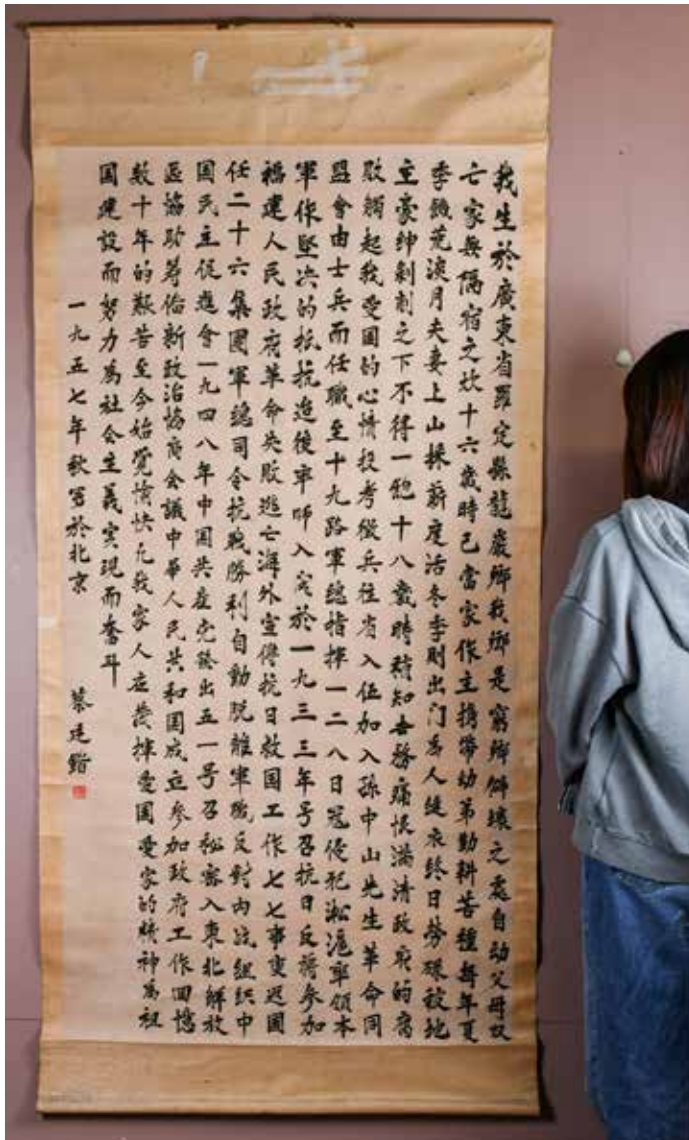 我生於廣東省羅定縣龍巖鄉我鄉是窮鄉僻壤之處自幼父母双
亡家無隔宿之炊十六歲時已當家作主携帶幼弟勤耕苦種每年夏
季饑荒淡月夫妻上山採薪度活冬季則出门為人縫衣終日勞碌被地
主豪紳剝削之下不得一飽十八歲時稍知世務痛恨滿清政府的腐
敗觸起我愛国的心情投考徵兵往省入伍加入孫中山先生革命同
盟會由士兵而任職至十九路軍總指揮一二八日寇侵犯淞滬率領本
軍作堅决的抵抗後率师入於一九三三年号召抗日反蔣參加
福建人民政府革命失敗逃亡海外宣傳抗日救国工作七七事变返国
任二十六集團軍總司令抗戰勝利自動脫離軍職反對内战組織中
国民主促進會一九四八年中国共產党發出五一号召秘密入東北解放
區協助籌俻新政治協商会議中華人民共和国成立參加政府工作回憶
数十年的艱苦至今始覺愉快凡我家人应發揮愛国愛家的精神為祖
国建設而努力為社会主義实現而奮斗
一九五七年秋写於北京 蔡廷鍇